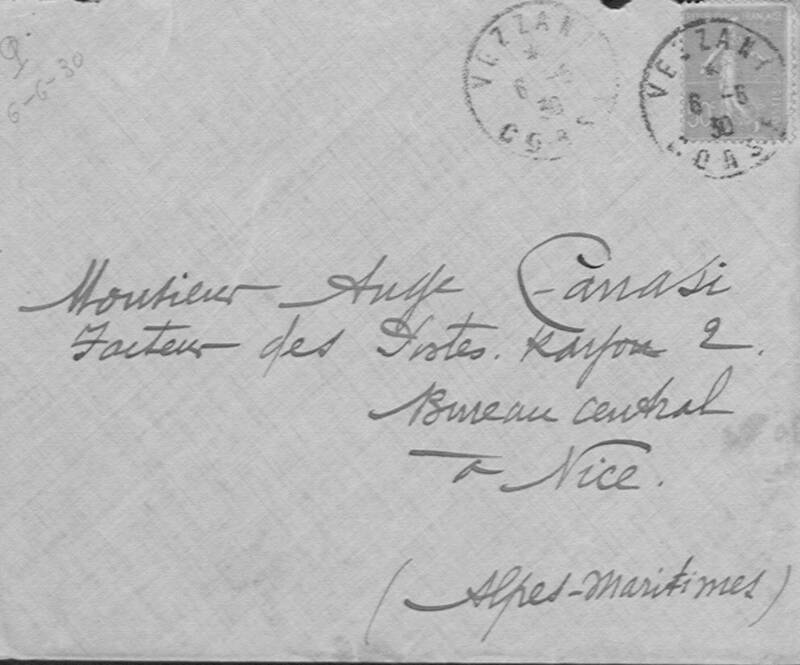 P.
6-6-30
VEZZANI
6 -6
30
CORSE
VEZZANI
6 -6
30
CORSE
50
Monsieur Ange Canasi
Facteur des Postes. Rayon 2.
Bureau central
à Nice.
(Alpes-Maritimes)